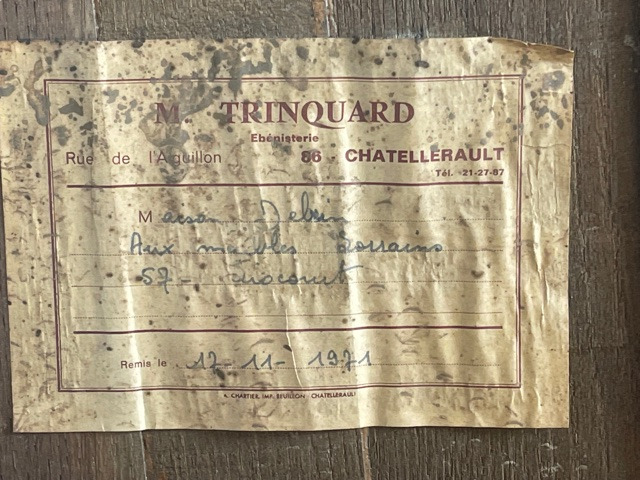 M. TRINQUARD
Ebénisterie
Rue de l'Aiguillon 86 - CHATELLERAULT
Tél. 21-27-87
Maison
Aux meubles Lorrains
57 -
Remis le 17-11-1971
CHARTIER, IMP. BEUILLON - CHATELLERAULT